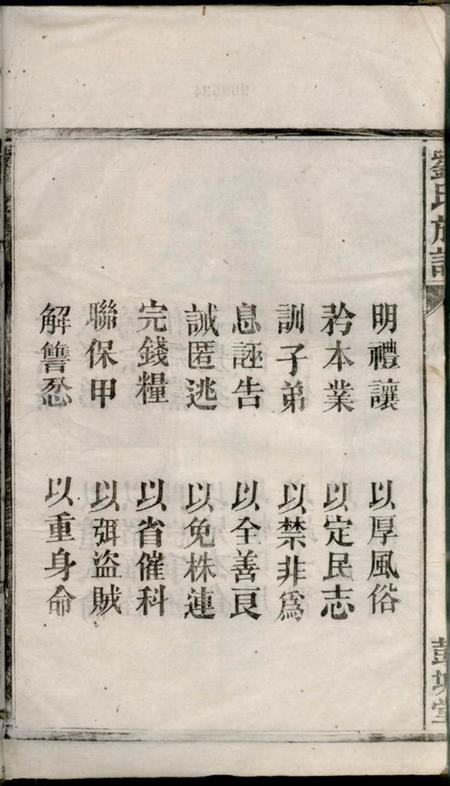 劉氏族譜
彭城堂
明禮讓 以厚風俗
矜本業 以定民志
訓子弟 以禁非爲
息誣告 以全善良
誡匿逃 以免株連
完錢糧 以省催科
聯保甲 以弭盜賊
解讐忿 以重身命